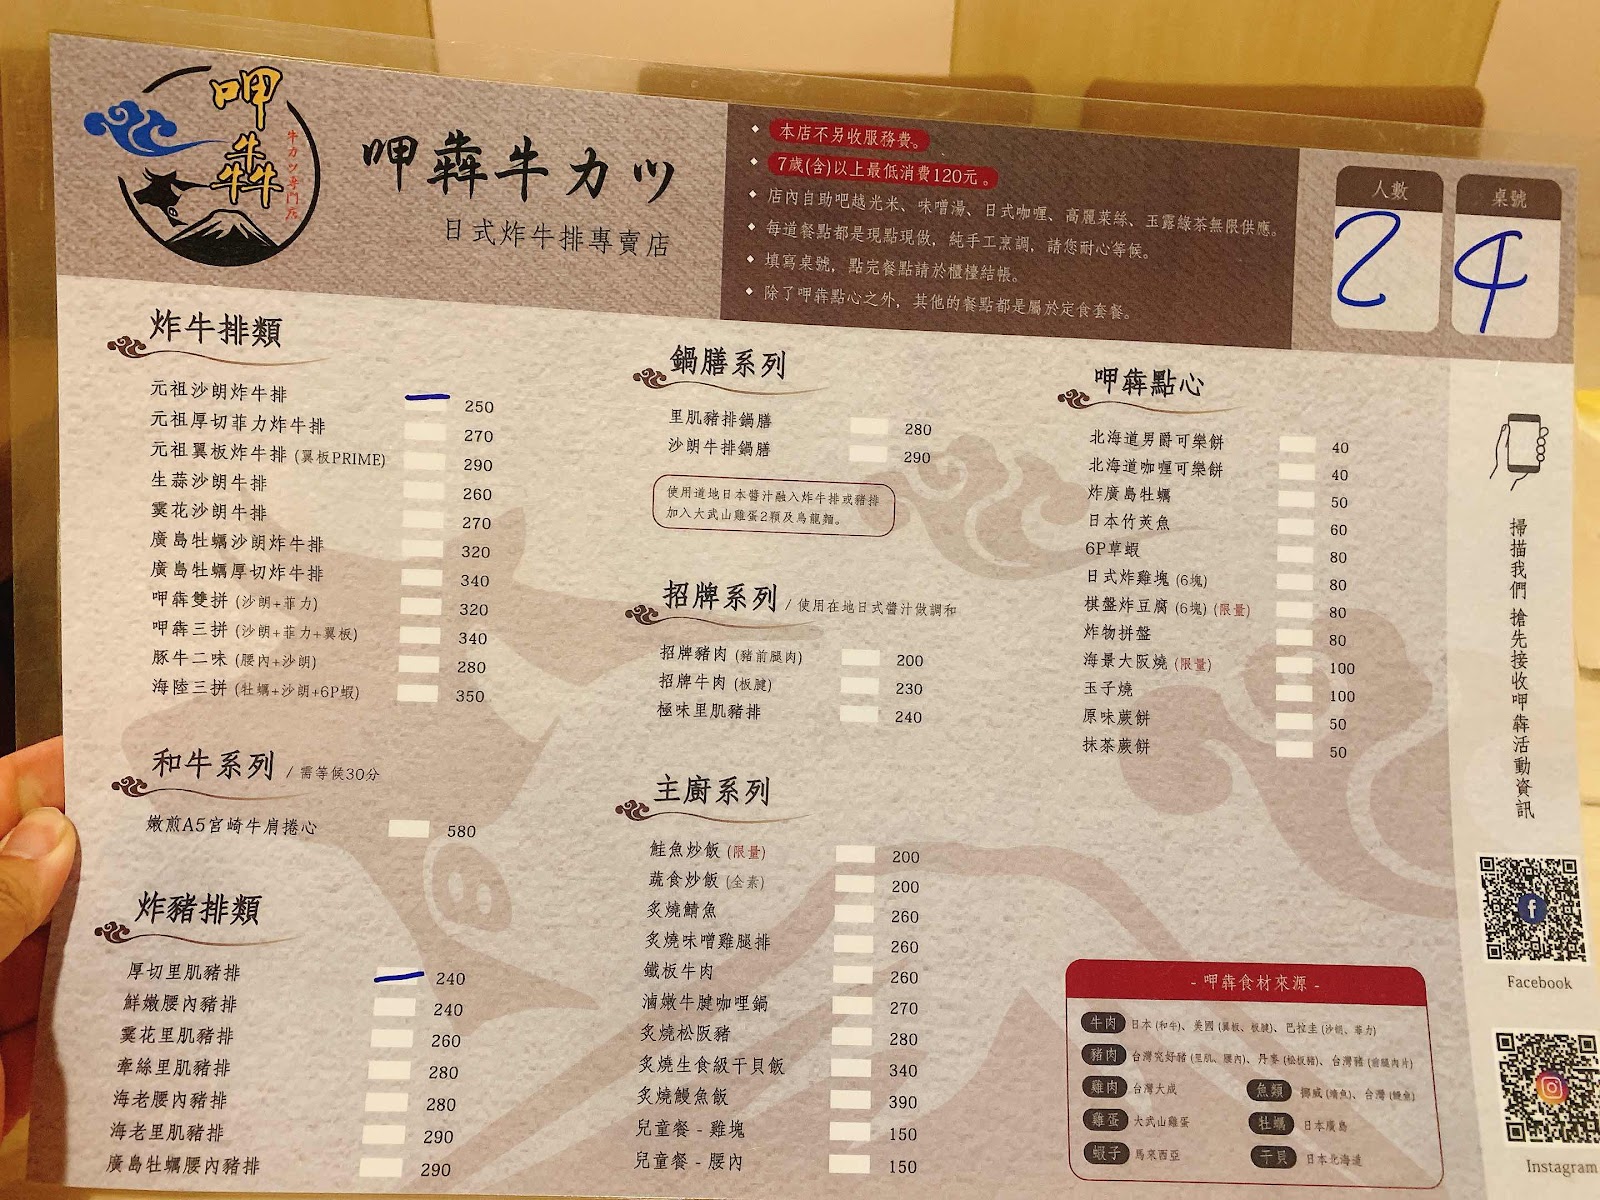 呷犇
牛カツ專門店
呷犇牛カツ
日式炸牛排專賣店
本店不另收服務費。
7歲(含)以上最低消費120元。
店內自助吧越光米、味噌湯、日式咖喱、高麗菜絲、玉露綠茶無限供應。
每道餐點都是現點現做，純手工烹調，請您耐心等候。
填寫桌號，點完餐點請於櫃檯結帳。
除了呷犇點心之外，其他的餐點都是屬於定食套餐。
人數
2
桌號
4
炸牛排類
元祖沙朗炸牛排 250
元祖厚切菲力炸牛排 270
元祖翼板炸牛排 (翼板PRIME) 290
生蒜沙朗牛排 260
雲花沙朗牛排 270
廣島牡蠣沙朗炸牛排 320
廣島牡蠣厚切炸牛排 340
呷犇雙拼 (沙朗+菲力) 320
呷犇三拼 (沙朗+菲力+翼板) 340
豚牛二味 (腰內+沙朗) 280
海陸三拼 (牡蠣+沙朗+6P蝦) 350
和牛系列 / 需等候30分
嫩煎A5宮崎牛肩捲心 580
炸豬排類
厚切里肌豬排 240
鮮嫩腰內豬排 240
雲花里肌豬排 260
牽絲里肌豬排 280
海老腰內豬排 280
海老里肌豬排 290
廣島牡蠣腰內豬排 290
鍋膳系列
里肌豬排鍋膳 280
沙朗牛排鍋膳 290
使用道地日本醬汁融入炸牛排或豬排
加入大武山雞蛋2顆及烏龍麵。
招牌系列 / 使用在地日式醬汁做調和
招牌豬肉 (豬前腿肉) 200
招牌牛肉 (板腱) 230
極味里肌豬排 240
主廚系列
鮭魚炒飯 (限量) 200
蔬食炒飯 (全素) 200
炙燒鯖魚 260
炙燒味噌雞腿排 260
鐵板牛肉 260
滷嫩牛腱咖哩鍋 270
炙燒松阪豬 280
炙燒生食級干貝飯 340
炙燒鰻魚飯 390
兒童餐 - 雞塊 150
兒童餐 - 腰內 150
呷犇點心
北海道男爵可樂餅 40
北海道咖喱可樂餅 40
炸廣島牡蠣 50
日本竹莢魚 60
6P草蝦 80
日式炸雞塊 (6塊) 80
棋盤炸豆腐 (6塊) (限量) 80
炸物拼盤 80
海景大阪燒 (限量) 100
玉子燒 100
原味蕨餅 50
抹茶蕨餅 50
- 呷犇食材來源 -
牛肉 日本 (和牛)、美國 (翼板、板腱)、巴拉圭 (沙朗、菲力)
豬肉 台灣究好豬 (里肌、腰內)、丹麥 (松板豬)、台灣豬 (前腿肉片)
雞肉 台灣大成
魚類 挪威 (鯖魚)、台灣 (鰻魚)
雞蛋 大武山雞蛋
牡蠣 日本廣島
蝦子 馬來西亞
干貝 日本北海道
掃描我們 搶先接收呷犇活動資訊
Facebook
Instagram